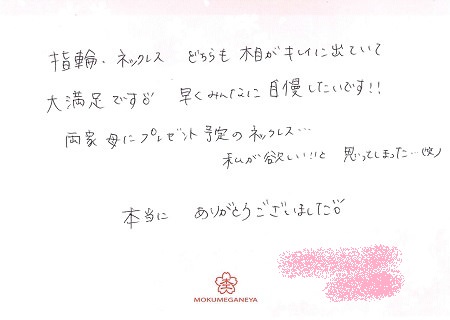 指輪・ネックレス どちらも 木目がキレイに出ていて
大満足ですδ 早くみんなに自慢したいです!!
両家 母にプレゼント予定のネックレス…
私が欲しい!!と 思ってしまった…(笑)
本当に ありがとうございましたδ
MOKUMEGANEYA